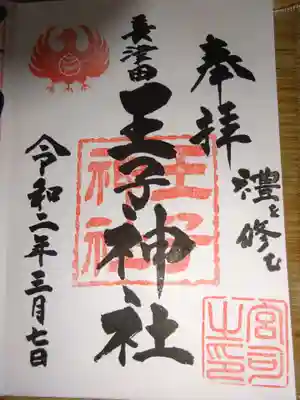 奉拝
禮を修む
長津田
王子神社
令和二年三月七日
王子
神社
宮司
之印